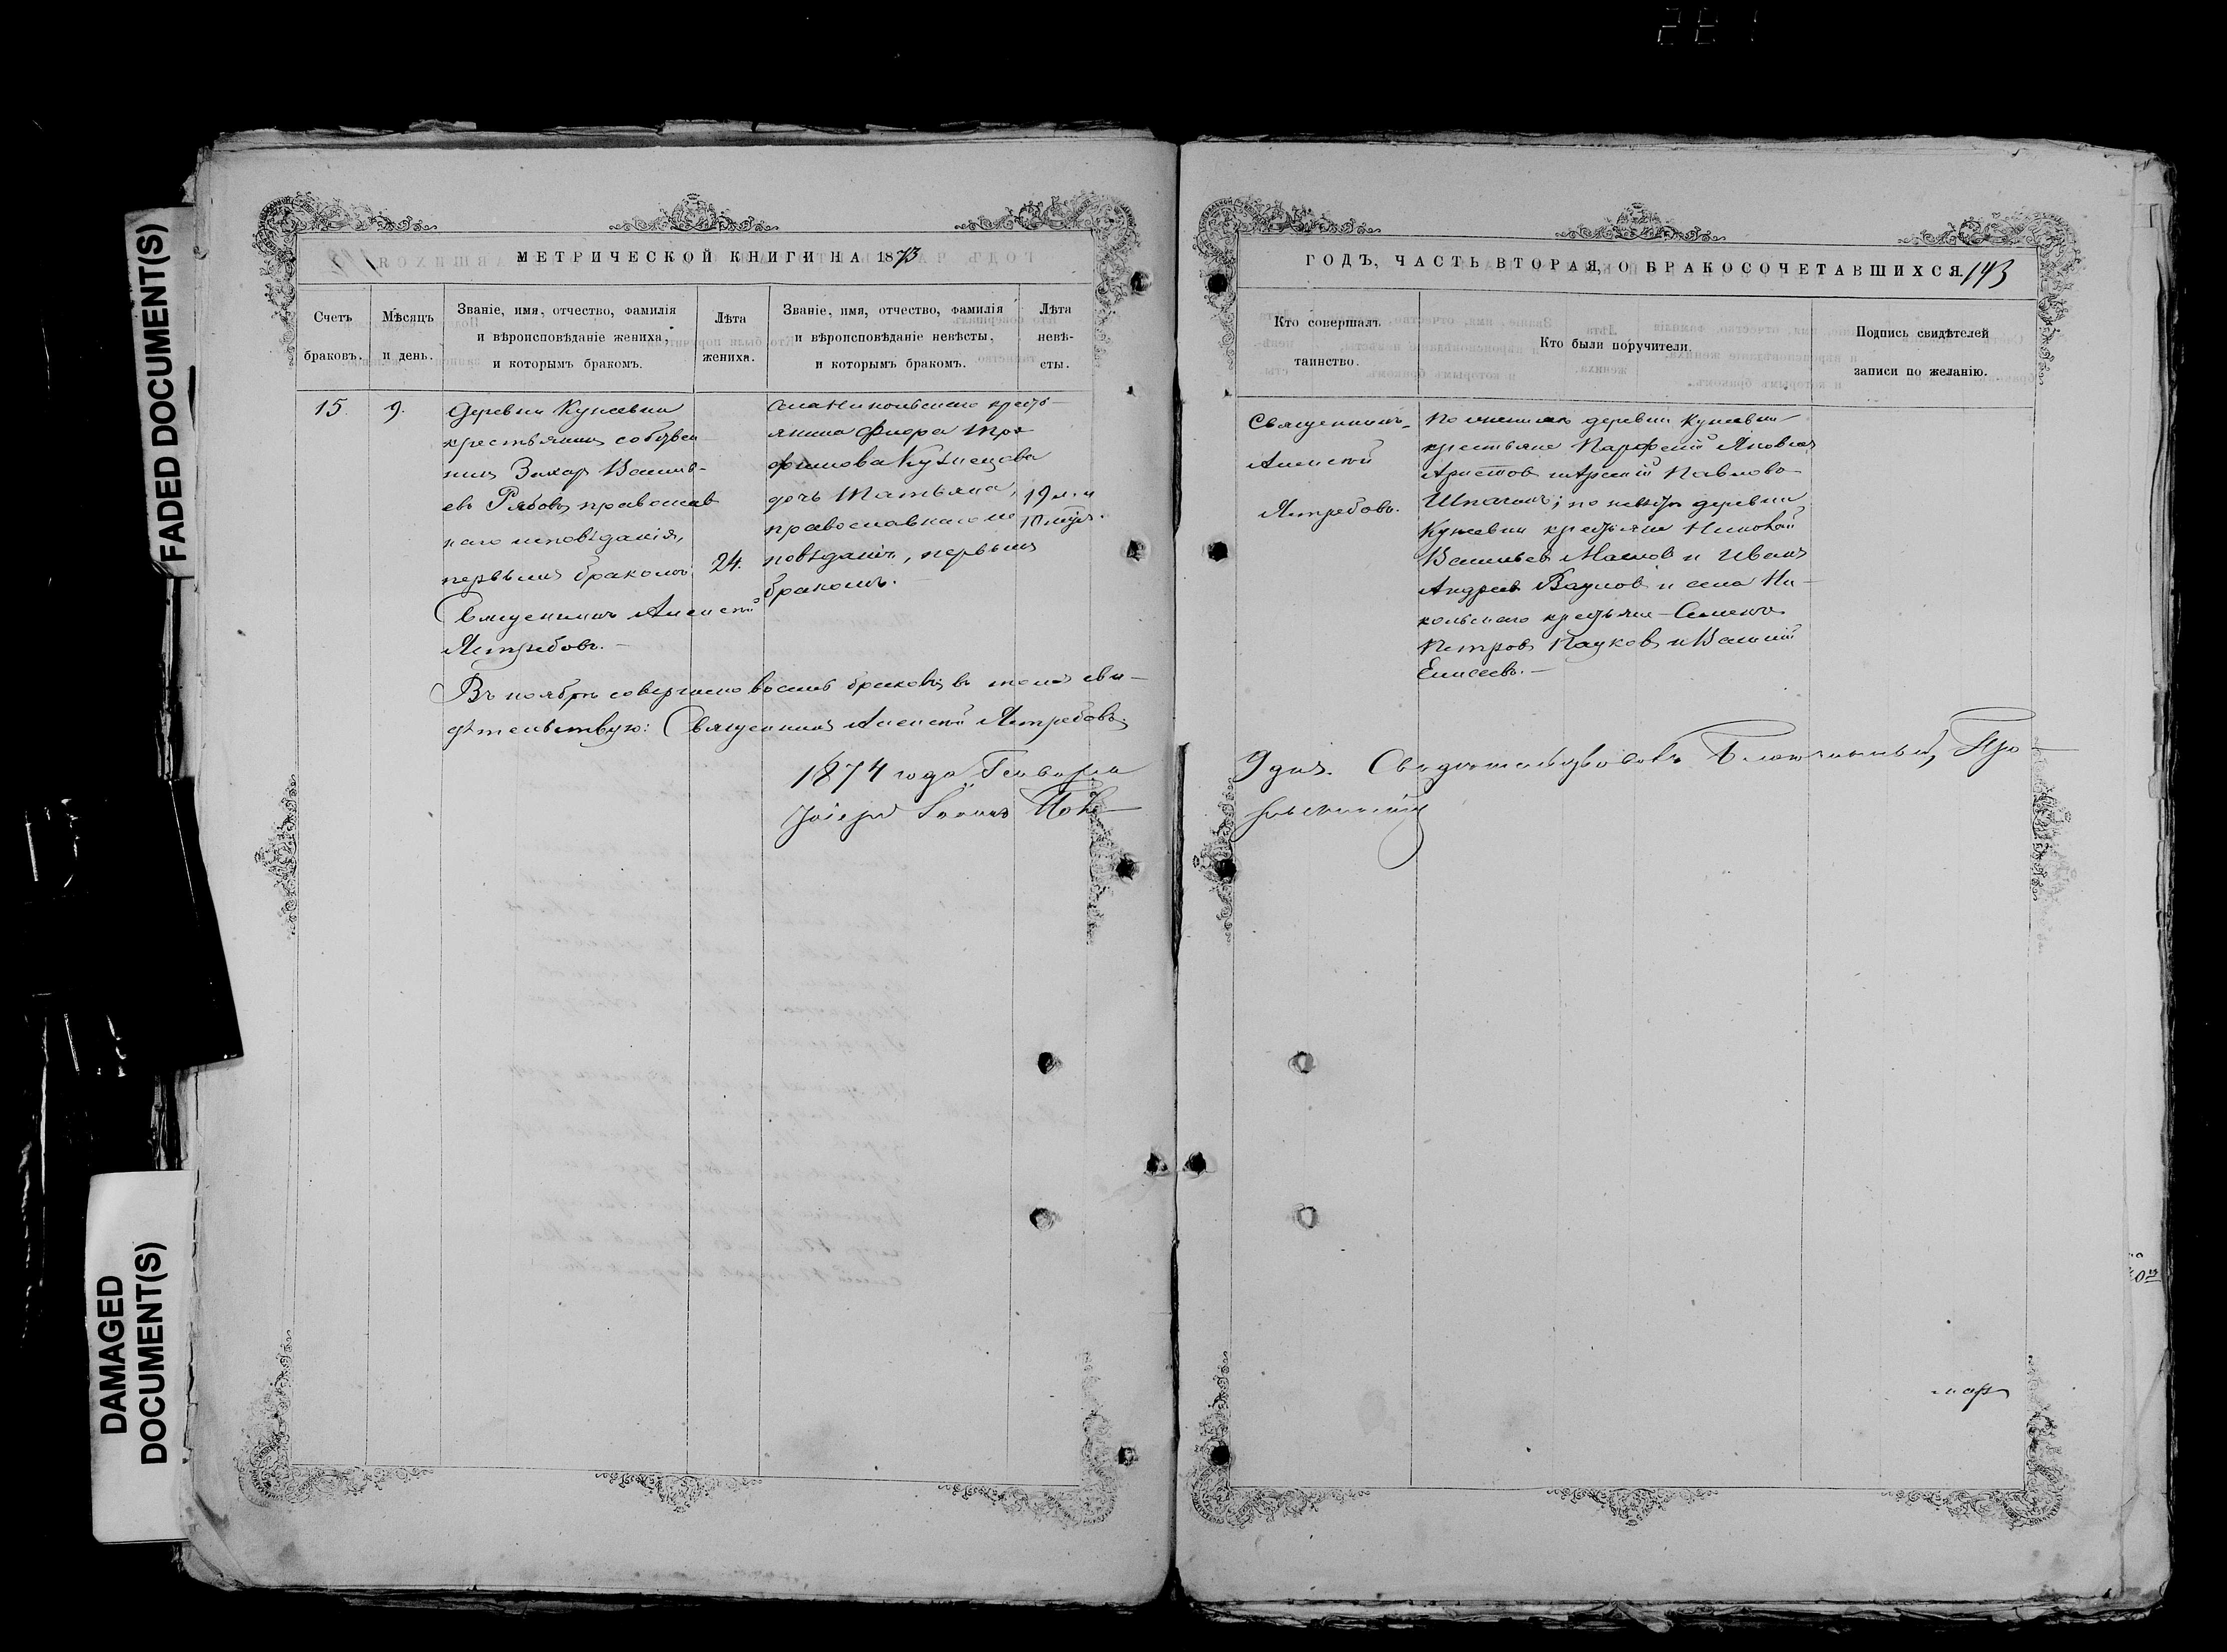 FADED DOCUMENT(S)
DAMAGED
DOCUMENT(S)
МЕТРИЧЕСКОЙ КНИГИ НА 1873
Счетъ
браковъ.
Мѣсяцъ
и день.
Званіе, имя, отчество, фамилія
и вѣроисповѣданіе жениха,
и которымъ бракомъ.
Лѣта
жениха.
Званіе, имя, отчество, фамилія
и вѣроисповѣданіе невѣсты,
и которымъ бракомъ.
Лѣта
невѣ-
сты.
15.
9.
Деревни Кунеевки
крестьянинъ собствен
никъ Захаръ Василь-
евъ Рябовъ, православ
наго исповѣданія,
первымъ бракомъ.
Священникъ Алексѣй
Ястребовъ. —
24.
села Никольскаго кресть-
янина Флора Тро-
фимова Кузнецова
дочь Татьяна,
православнаго ис
повѣданія, первымъ
бракомъ.
19 л. и
10 мѣс.
Въ ноябрѣ совершено восемь браковъ, въ томъ сви-
дѣтельствую: Священникъ Алексѣй Ястребовъ.
1874 года Генваря
Іерей Іоаннъ
ГОДЪ, ЧАСТЬ ВТОРАЯ, О БРАКОСОЧЕТАВШИХСЯ. 143
Кто совершалъ
таинство.
Кто были поручители.
Подпись свидѣтелей
записи по желанію.
Священникъ
Алексѣй
Ястребовъ.
По женихѣ деревни Кунеевки
крестьяне Парфеній Яковлевъ
Аристовъ и Арсеній Павловъ
по невѣстѣ деревни
Кунеевки крестьяне Николай
Васильевъ Масловъ и Иванъ
Андреевъ и села Ни-
кольскаго крестьяне Семенъ
Петровъ Пауковъ и Василій
Елисеевъ. —
9 дня. Свидѣтельствовалъ Благочинный,